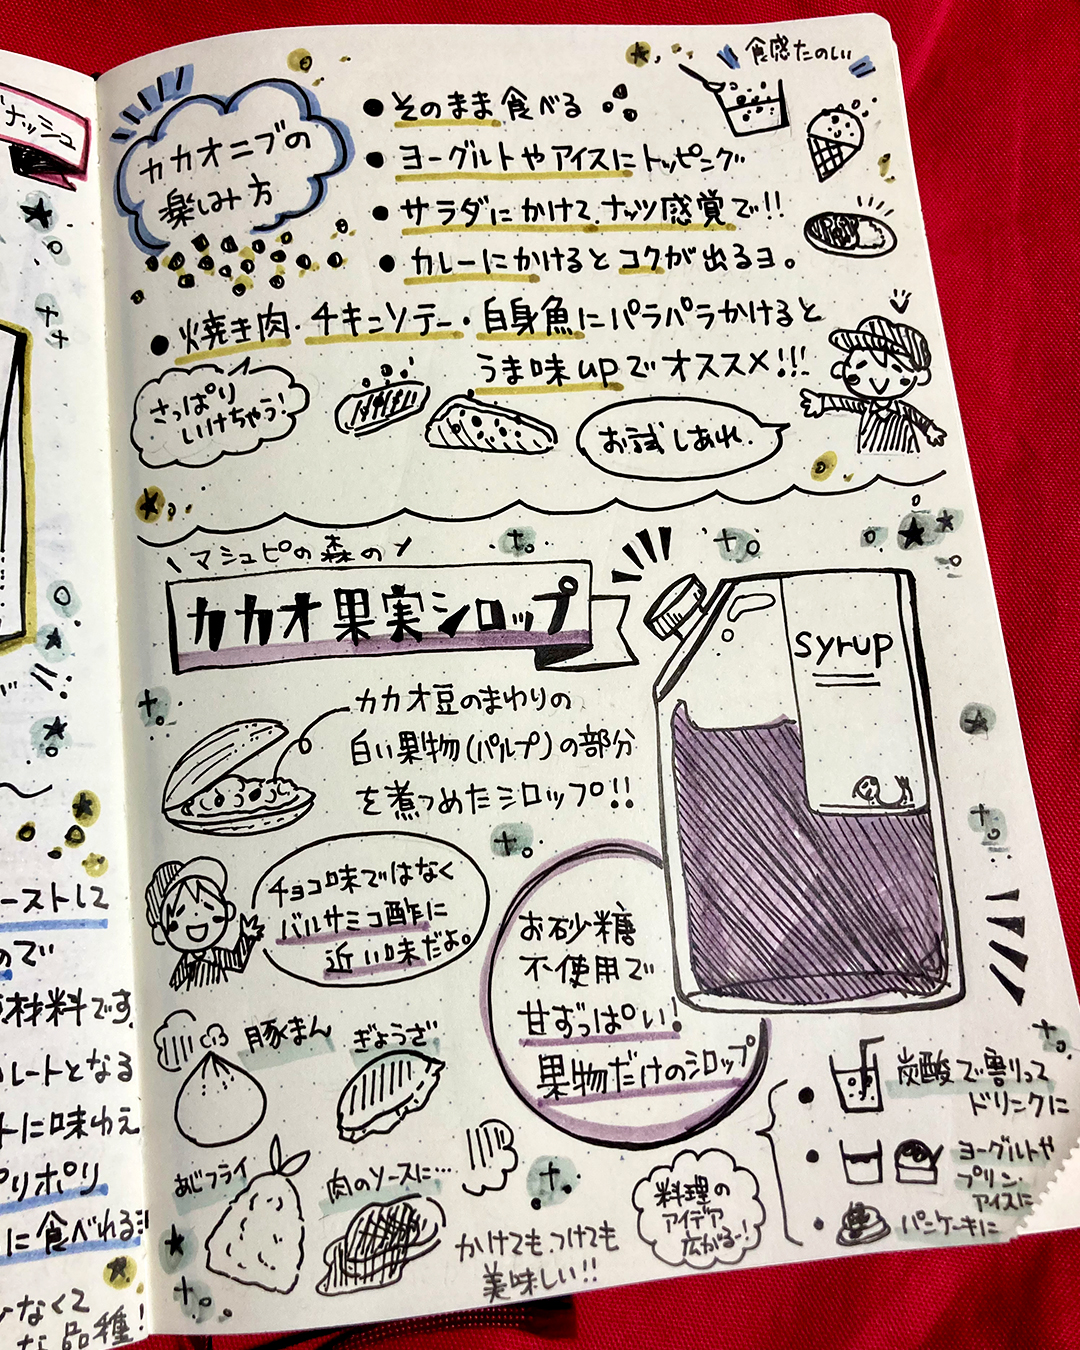 ナッシュ
ーストして
ので
材料です。
レートとなる
トに味わえ
ポリポリ
に食べれる!!
なくて
な品種!
カカオニブの
楽しみ方
食感たのしい
● そのまま食べる
● ヨーグルトやアイスにトッピング
● サラダにかけて、ナッツ感覚で!!
● カレーにかけるとコクが出るヨ。
● 焼き肉・チキンソテー・白身魚にパラパラかけると
うま味upでオススメ!!!
さっぱり
いけちゃう!
お試しあれ。
マシュピの森の
カカオ果実シロップ
syrup
カカオ豆のまわりの
白い果物(パルプ)の部分
を煮つめたシロップ!!
チョコ味ではなく
バルサミコ酢に
近い味だよ。
お砂糖
不使用で
甘ずっぱい!
果物だけのシロップ
豚まん
ぎょうざ
あじフライ
肉のソースに…
かけても、つけても
美味しい!!
料理の
アイデア
広がるー!
● 炭酸で割って
ドリンクに
● ヨーグルトや
プリン・
アイスに
● パンケーキに